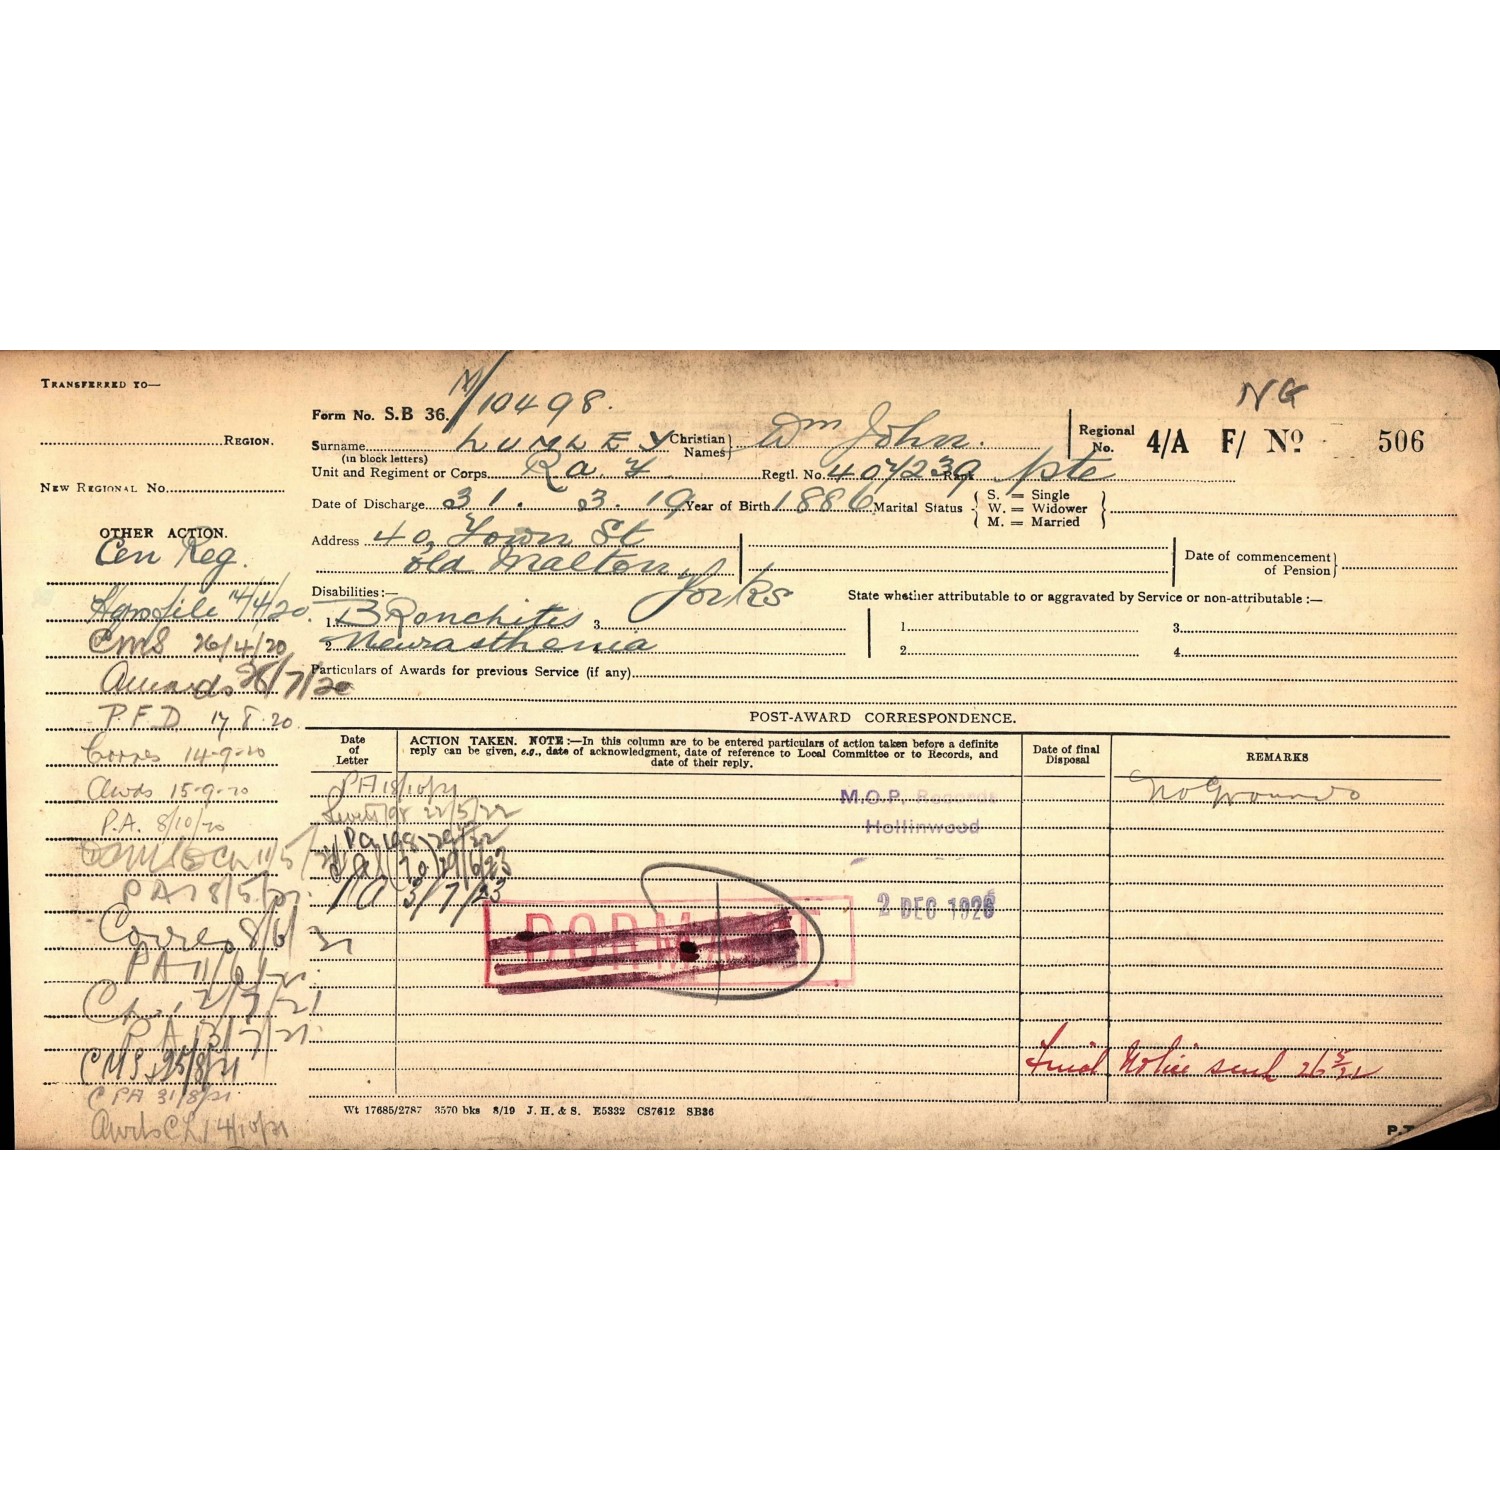 TRANSFERRED TO—
REGION.
NEW REGIONAL No.
OTHER ACTION.
Cen Reg.
14/4/20
CMS 26/4/20
Awards 26/7/20
P.F.D 17.8.20
Corres 14-9-20
Awds 15-9-20
P.A. 8/10/20
11/5/21
PA 18/5/21
Corres 8/6/21
PA 11/6/21
12/7/21
PA 13/7/21
CMS 25/8/21
C PA 31/8/21
Awds CL 14/10/21
Form No. S.B 36. /10498.
Surname LUMLEY Christian Names Wm John.
(in block letters)
NG
Regional No. 4/A F/ No 506
Unit and Regiment or Corps R a F Regtl. No. 407239 Rank pte
Date of Discharge 31. 3. 19 Year of Birth 1886 Marital Status S. = Single
W. = Widower
M. = Married
Address 40, Town St
Old Malton Yorks
Date of commencement of Pension
Disabilities:—
1. BRonchitis 3.
2. Neurasthenia 4.
State whether attributable to or aggravated by Service or non-attributable :—
1. 3.
2. 4.
Particulars of Awards for previous Service (if any)
POST-AWARD CORRESPONDENCE.
Date of Letter
ACTION TAKEN. NOTE:—In this column are to be entered particulars of action taken before a definite
reply can be given, e.g., date of acknowledgment, date of reference to Local Committee or to Records, and
date of their reply.
Date of final Disposal
REMARKS
PA 18/10/21
22/5/22
29/6/23
PA 3/7/23
No Grounds
M.O.P. Records
Hollinwood
2 DEC 1926
DORMANT
Final Notice sent 26/5/22
Wt 17685/2787 3570 bks 8/19 J. H. & S. E5332 CS7612 SB36
P.T